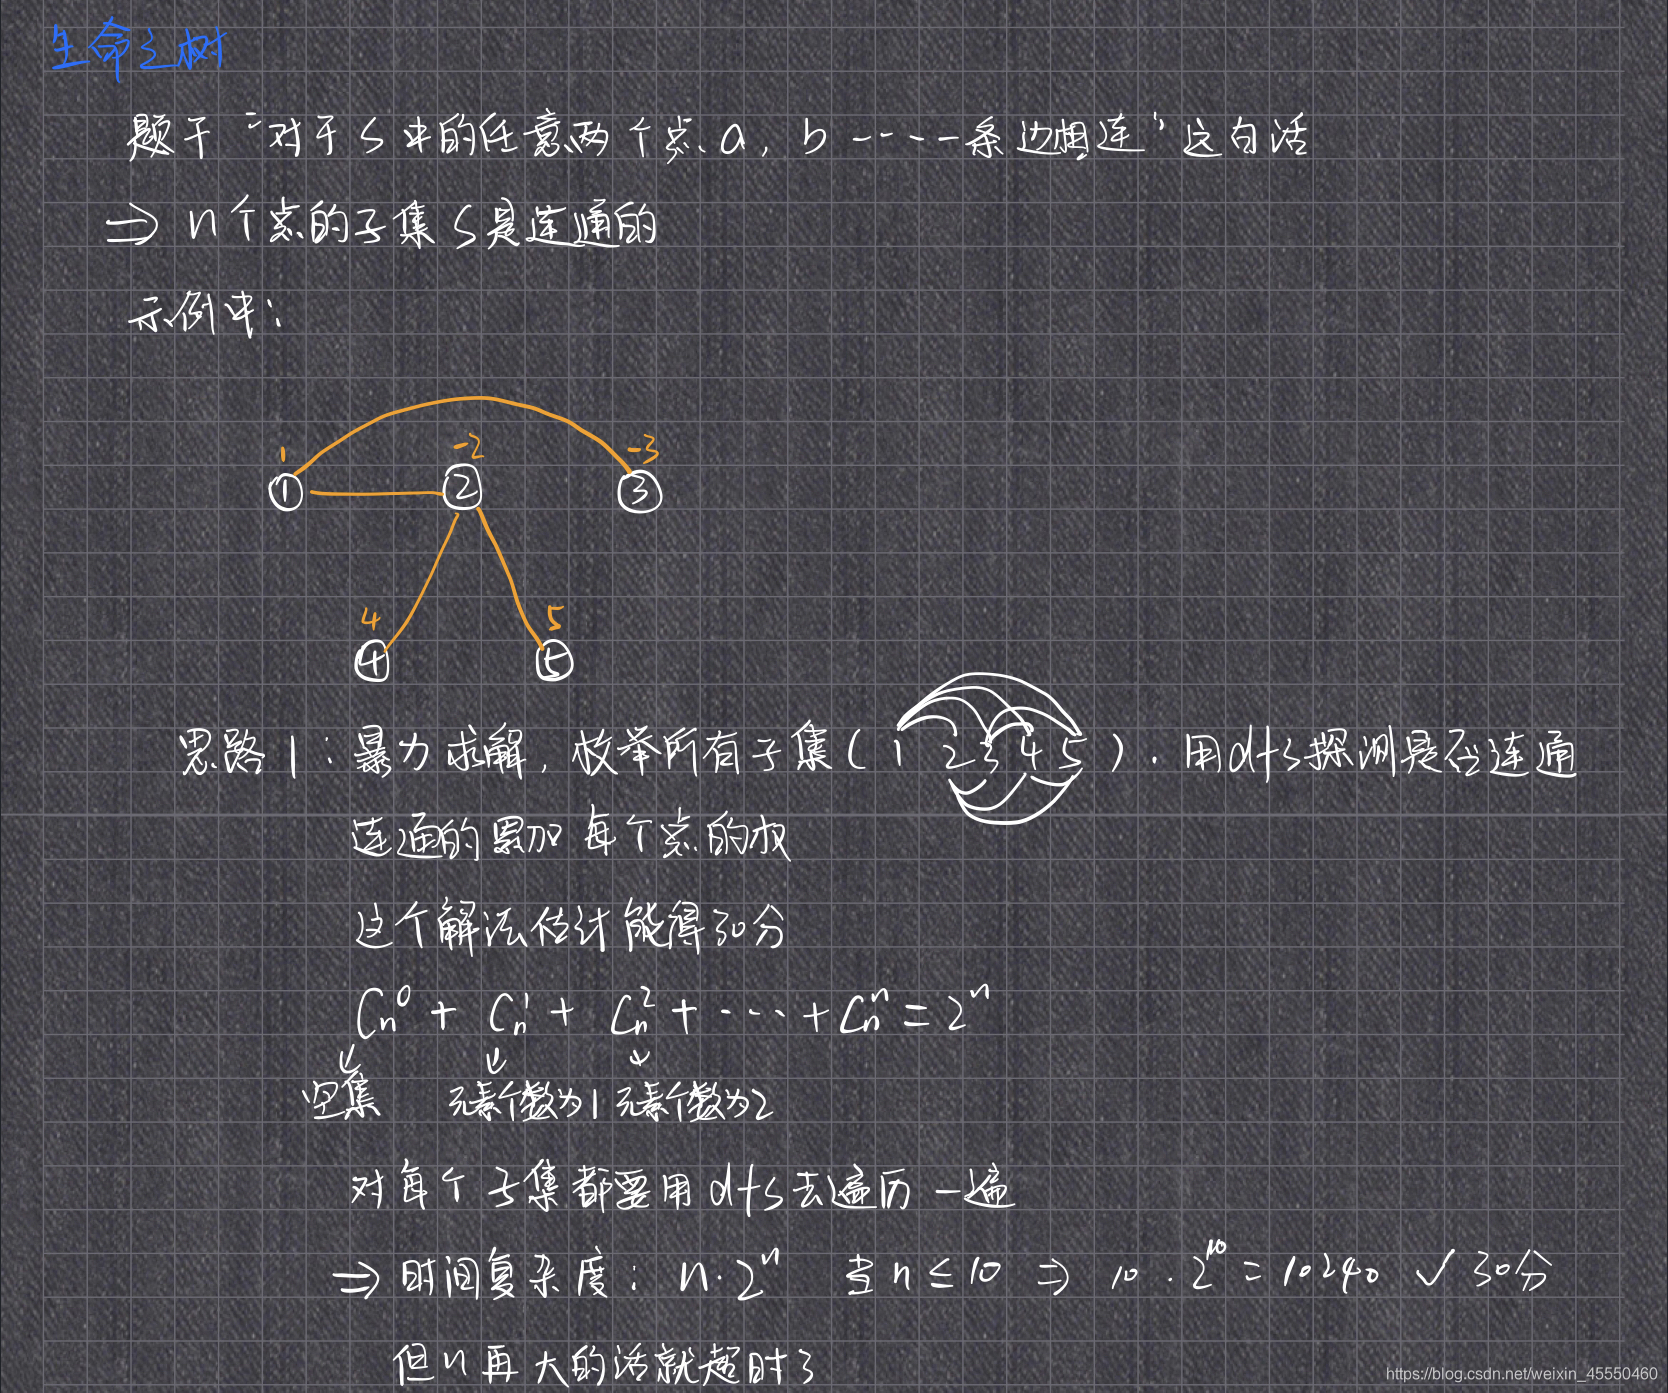 生命之树
题干“对于S中的任意两个点a, b ----一条边相连”这句话
⇒ n个点的子集S是连通的
示例中：
1 -2 -3
① ② ③
4 5
④ ⑤
思路1：暴力求解，枚举所有子集（1 2 3 4 5）.用dfs探测是否连通
连通的累加每个点的权
这个解法估计能得30分
Cₙ⁰ + Cₙ¹ + Cₙ² + ···· + Cₙⁿ = 2ⁿ
空集 元素个数为1 元素个数为2
对每个子集都要用dfs去遍历一遍
⇒ 时间复杂度：n·2ⁿ 当n≤10 ⇒ 10·2¹⁰=10240 ✓ 30分
但n再大的话就超时了
https://blog.csdn.net/weixin_45550460